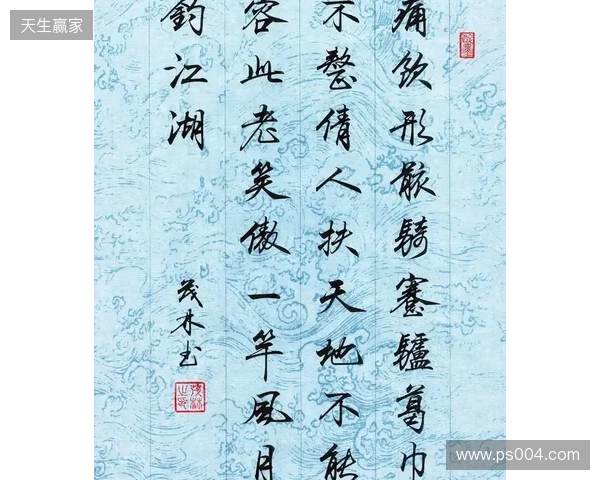 天生赢家
痛飲形骸騎蹇驢葛巾
不整倩人扶天地不能
容此老笑傲一竿風月
釣江湖
茂林书
www.ps004.com